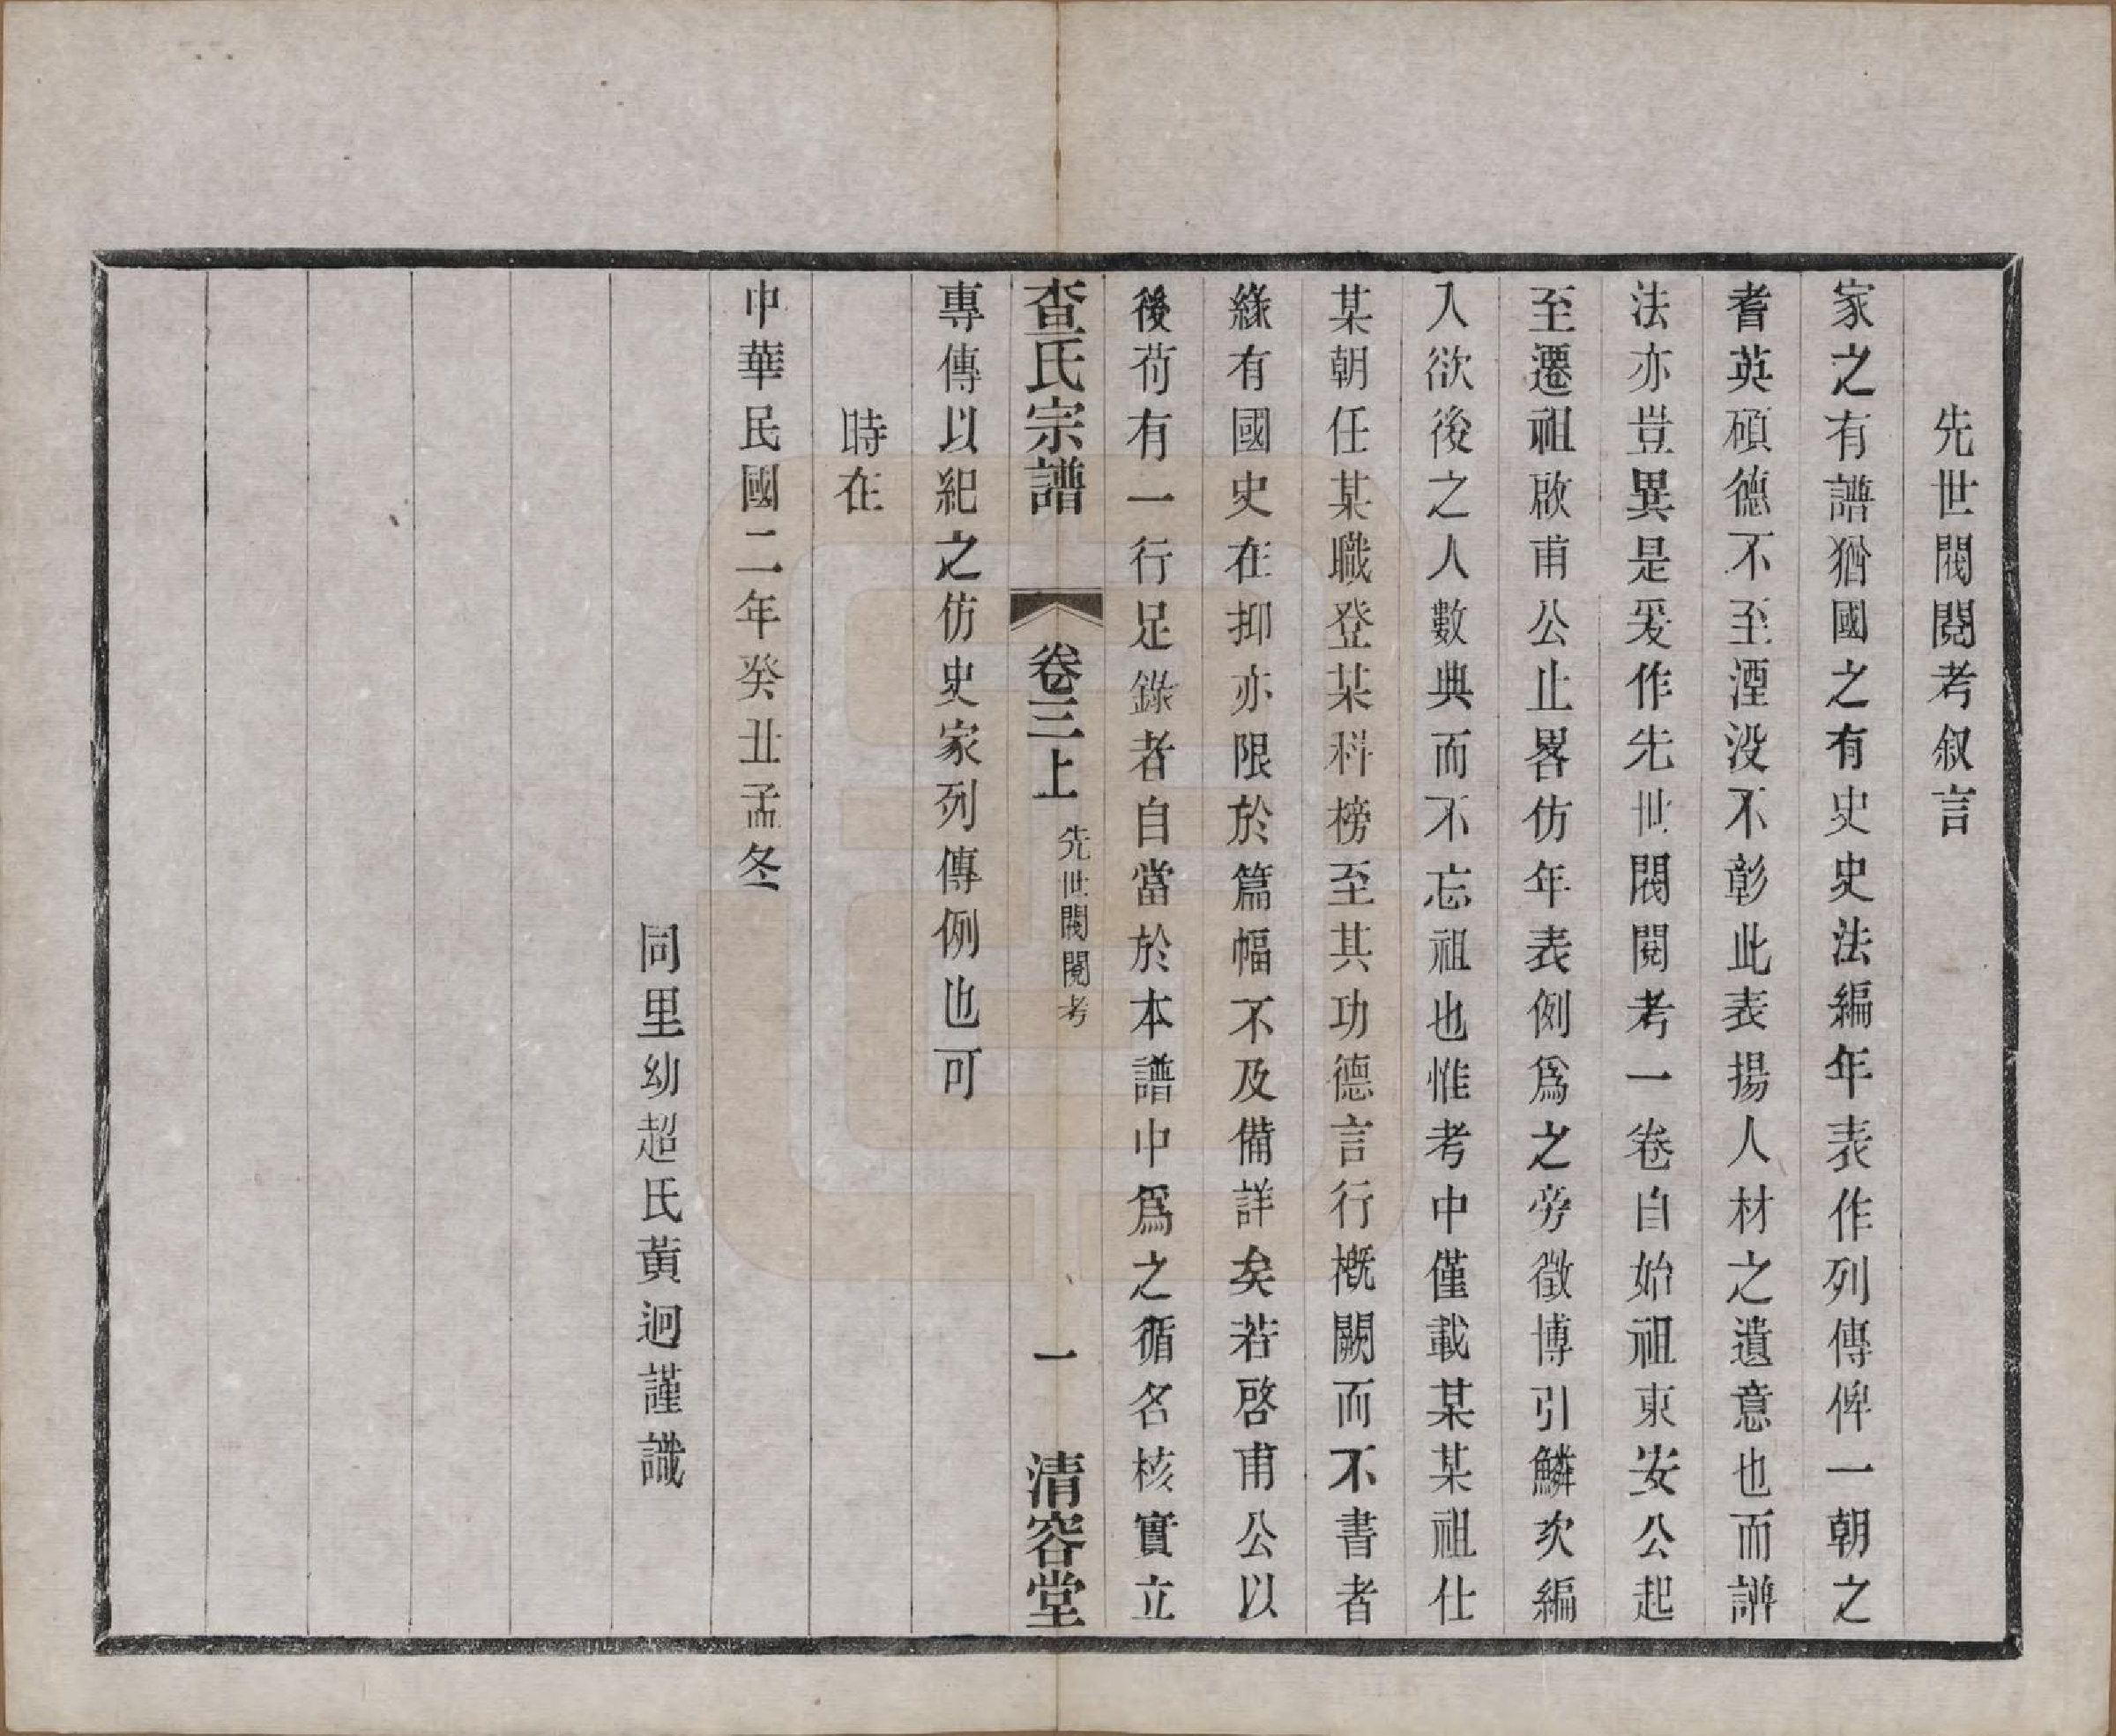 先世閥閱考叙言
家之有譜猶國之有史史法編年表作列傳俾一朝之
耆英碩德不至湮没不彰此表表揚人材之遺意也而譜
法亦豈異是爰作先世閥閱考一卷自始祖東安公起
至遷祖啟甫公止畧仿年表例爲之旁徵博引鱗次編
入欲後之人數典而不忘祖也惟考中僅載某某祖仕
某朝任某職登某科榜至其功德言行概闕而不書者
緣有國史在抑亦限於篇幅不及備詳矣若啓甫公以
後苟有一行足錄者自當於本譜中爲之循名核實立
查氏宗譜 卷三上 先世閥閱考 一 清容堂
專傳以紀之仿史家列傳例也可
時在
中華民國二年癸丑孟冬
同里幼超氏黃迥謹識